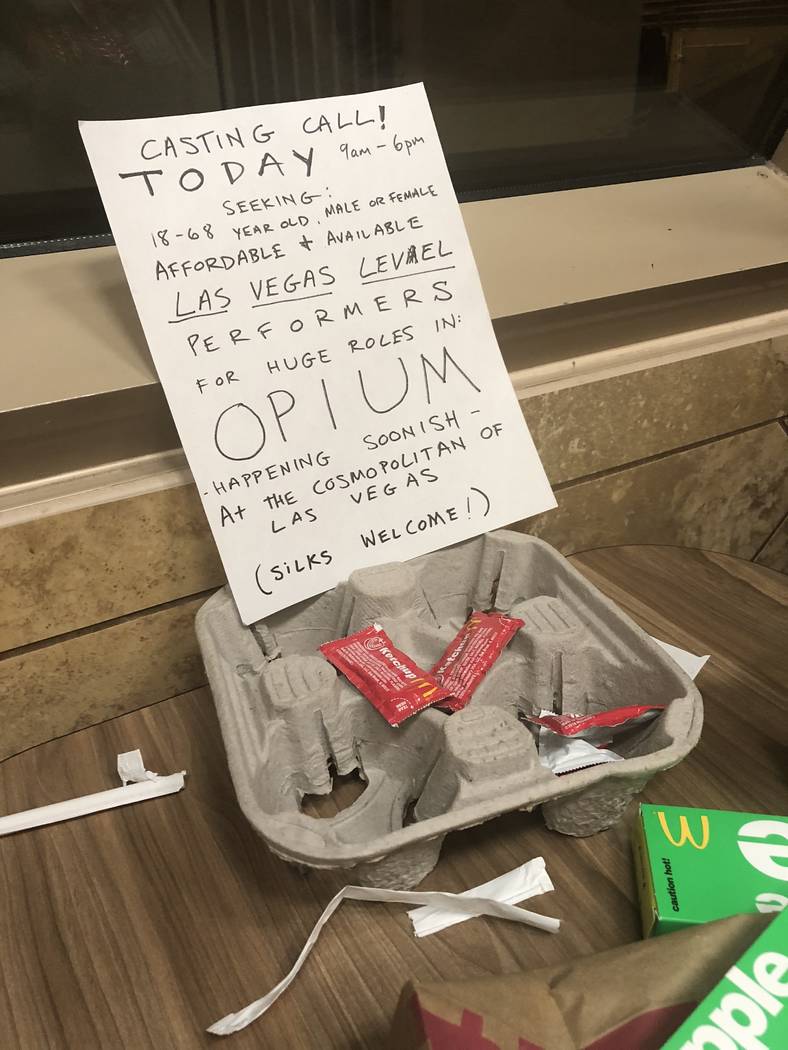 CASTING CALL!
TODAY 9am - 6pm
SEEKING:
18-68 YEAR OLD, MALE OR FEMALE
AFFORDABLE + AVAILABLE
LAS VEGAS LEVEL
PERFORMERS
FOR HUGE ROLES IN:
OPIUM
- HAPPENING SOONISH -
At THE COSMOPOLITAN OF
LAS VEGAS
(SiLKS WELCOME!)
Ketchup
Ketchup
caution hot!
pple